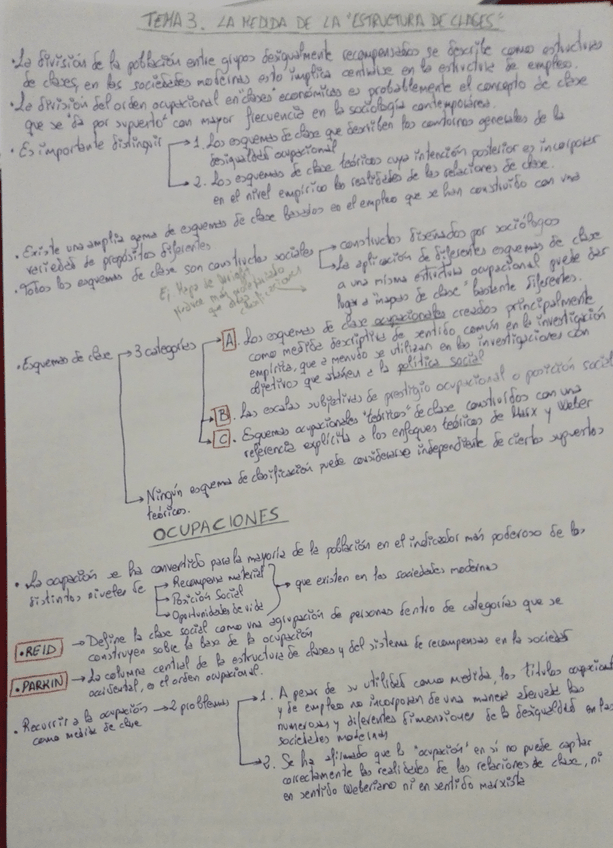 TEMA 3. LA MEDIDA DE LA "ESTRUCTURA DE CLASES"
• La división de la población entre grupos desigualmente recompensados se describe como estructuras
de clases, en las sociedades modernas esto implica centrarse en la estructura de empleo.
• La división del orden ocupacional en "clases" económicas es probablemente el concepto de clase
que se "da por supuesto" con mayor frecuencia en la sociología contemporánea.
• Es importante distinguir → 1. Los esquemas de clase que describen los contornos generales de la
desigualdad ocupacional
→ 2. Los esquemas de clase teóricos cuya intención posterior es incorporar
en el nivel empírico las realidades de las relaciones de clase.
• Existe una amplia gama de esquemas de clase basados en el empleo que se han construido con una
variedad de propósitos diferentes
• Todos los esquemas de clase son constructos sociales → constructos diseñados por sociólogos
→ La aplicación de diferentes esquemas de clase
a una misma estructura ocupacional puede dar
lugar a "mapas de clase" bastante diferentes.
Ej.
produce más
que otras
clasificaciones
• Esquemas de clase → 3 categorías → A. Los esquemas de clase ocupacionales creados principalmente
como medidas descriptivas de sentido común en la investigación
empírica, que a menudo se utilizan en las investigaciones con
objetivos que atañen a la política social
→ B. Las escalas subjetivas de prestigio ocupacional o posición social
→ C. Esquemas ocupacionales "teóricos" de clase construidos con una
referencia explícita a los enfoques teóricos de Marx y Weber
→ Ningún esquema de clasificación puede considerarse independiente de ciertos supuestos
teóricos.
OCUPACIONES
• La ocupación se ha convertido para la mayoría de la población en el indicador más poderoso de los
distintos niveles de → Recompensa material
→ Posición Social
→ Oportunidades de vida
→ que existen en las sociedades modernas
• REID → Define la clase social como una agrupación de personas dentro de categorías que se
construyen sobre la base de la ocupación
• PARKIN → La columna central de la estructura de clases y del sistema de recompensas en la sociedad
occidental, es el orden ocupacional.
• Recurrir a la ocupación → 2 problemas → 1. A pesar de su utilidad como medida, los títulos ocupacional
como medida de clase
y de empleo no incorporan de una manera adecuada las
numerosas y diferentes dimensiones de la desigualdad en las
sociedades modernas
→ 2. Se ha afirmado que la "ocupación" en sí no puede captar
correctamente las realidades de las relaciones de clase, ni
en sentido weberiano ni en sentido marxista